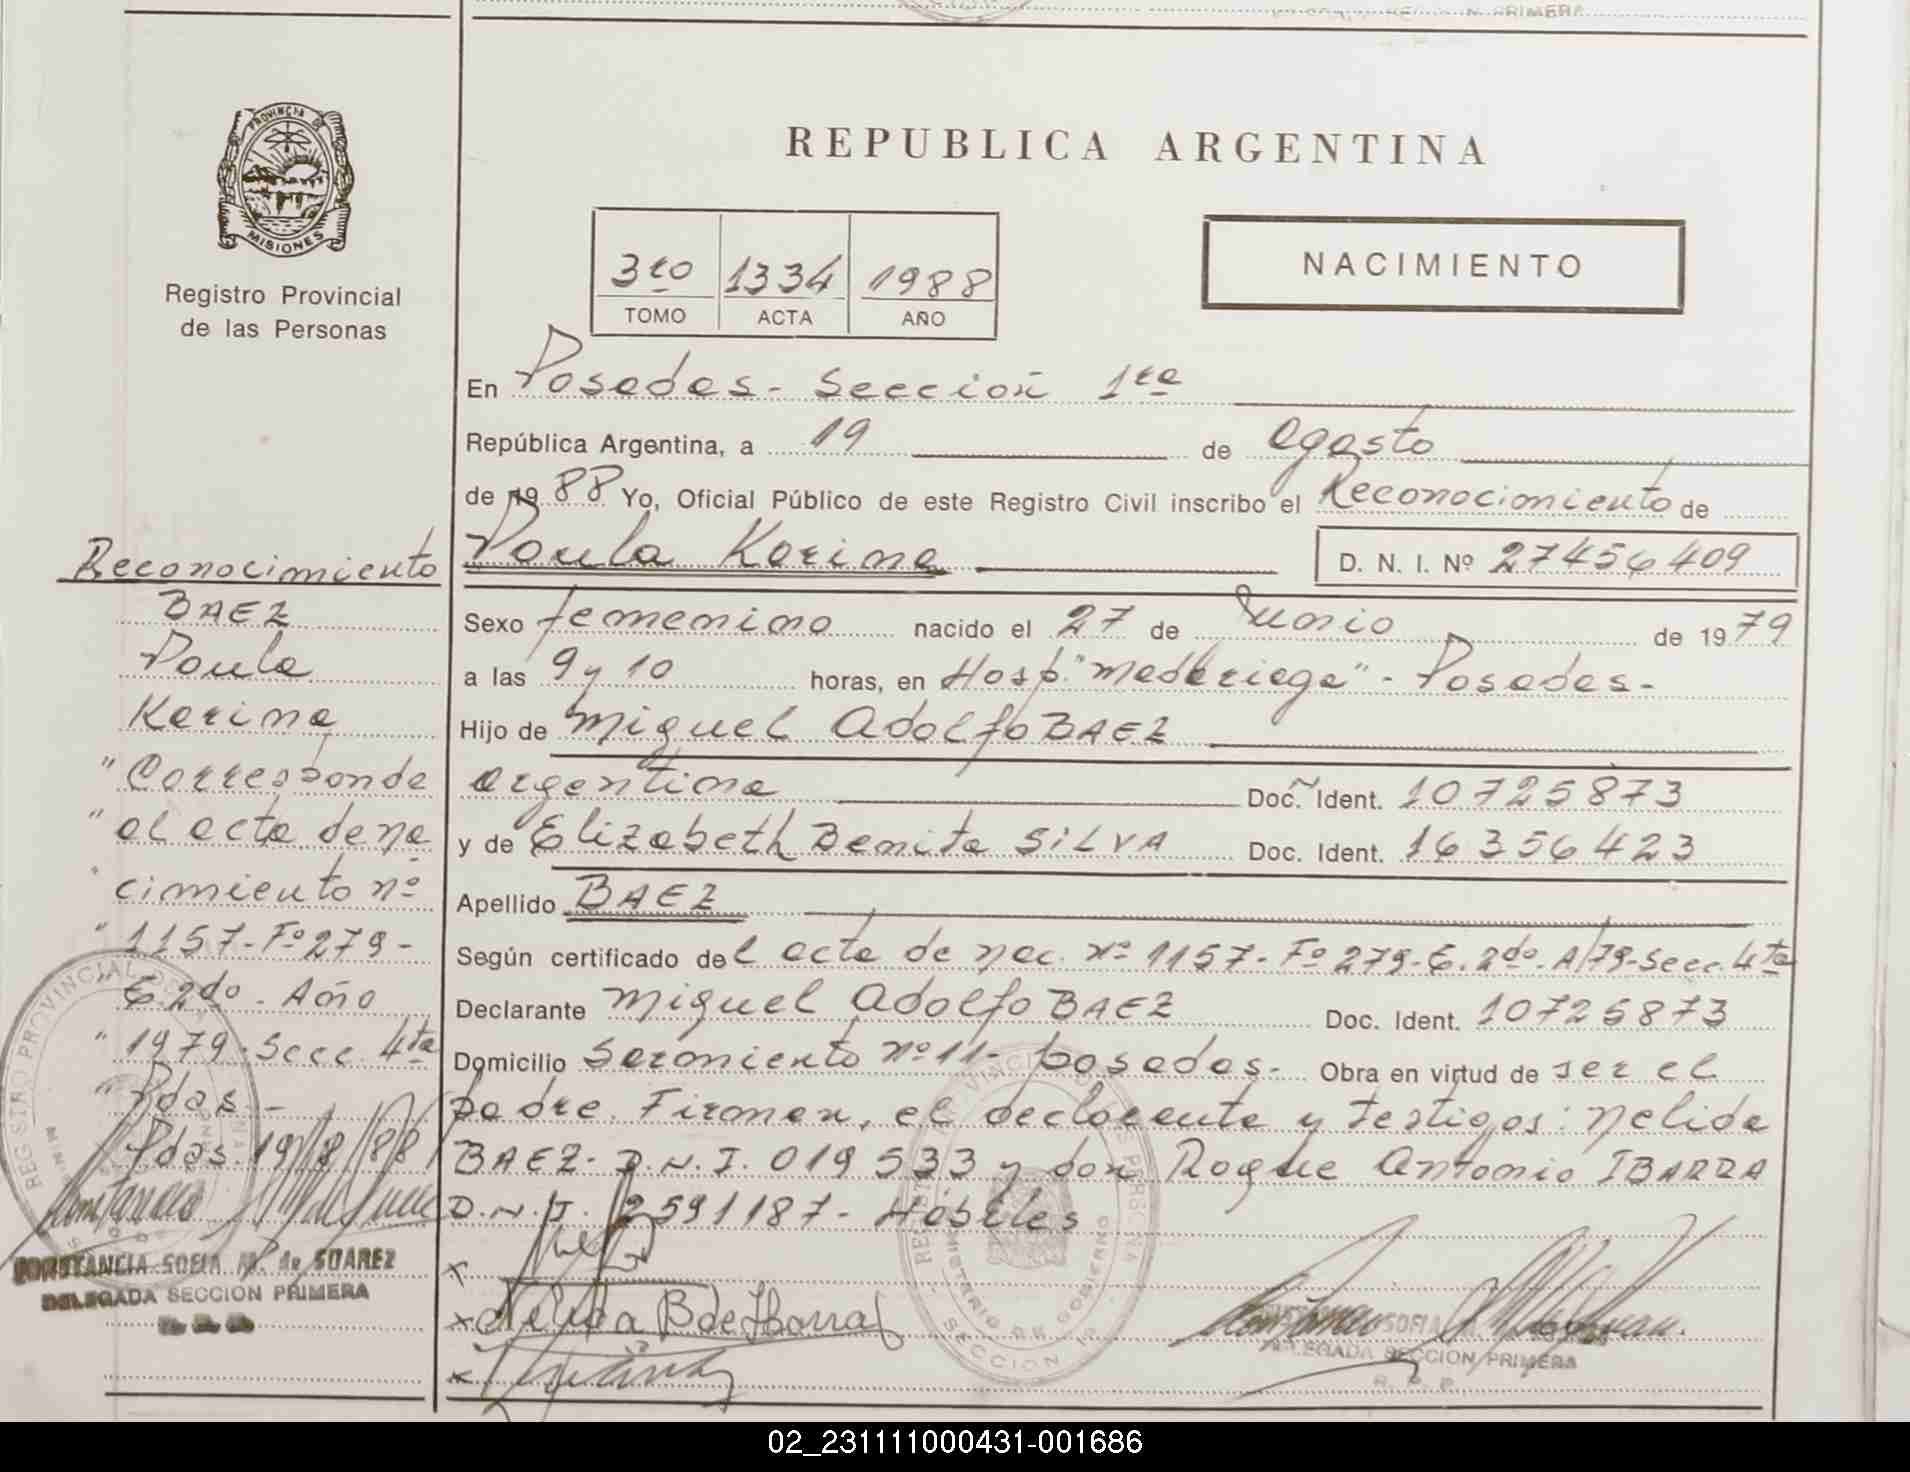 PROVINCIA DE
MISIONES
Registro Provincial
de las Personas
Reconocimiento
BAEZ
Paula
Karina
"Corresponde
"al acta de na
"cimiento nº
"1157-Fº279-
"E. 2do. Año
"1979-Secc. 4ta
"Pdas.-
Pdas. 19/8/88
CONSTANCIA SOFIA M. de SUAREZ
DELEGADA SECCION PRIMERA
PRIMERA
REPUBLICA ARGENTINA
3ro 1334 1988
TOMO ACTA AÑO
NACIMIENTO
En Posadas - Sección 1ra
República Argentina, a 19 de agosto
de 1988 Yo, Oficial Público de este Registro Civil inscribo el Reconocimiento de
Paula Karina D. N. I. Nº 27456409
Sexo femenino nacido el 27 de Junio de 1979
a las 9 y 10 horas, en Hosp. "Madariaga" - Posadas-
Hijo de Miguel Adolfo BAEZ
argentina Doc. Ident. 10725873
y de Elizabeth Benita SILVA Doc. Ident. 16356423
Apellido BAEZ
Según certificado del acta de nac. Nº 1157-Fº 279-E. 2do. A/79-Secc. 4ta
Declarante Miguel Adolfo BAEZ Doc. Ident. 10725873
Domicilio Sarmiento nº 11- posadas- Obra en virtud de ser el
padre. Firman, el declarante y testigos: Nelida
BAEZ- D.N.I. 019533 y don Roque Antonio IBARRA
D.N.I. 2591187- Hábiles
Nelida B de Ibarra
SOFIA
DELEGADA SECCION PRIMERA
R. P. P.
02_231111000431-001686